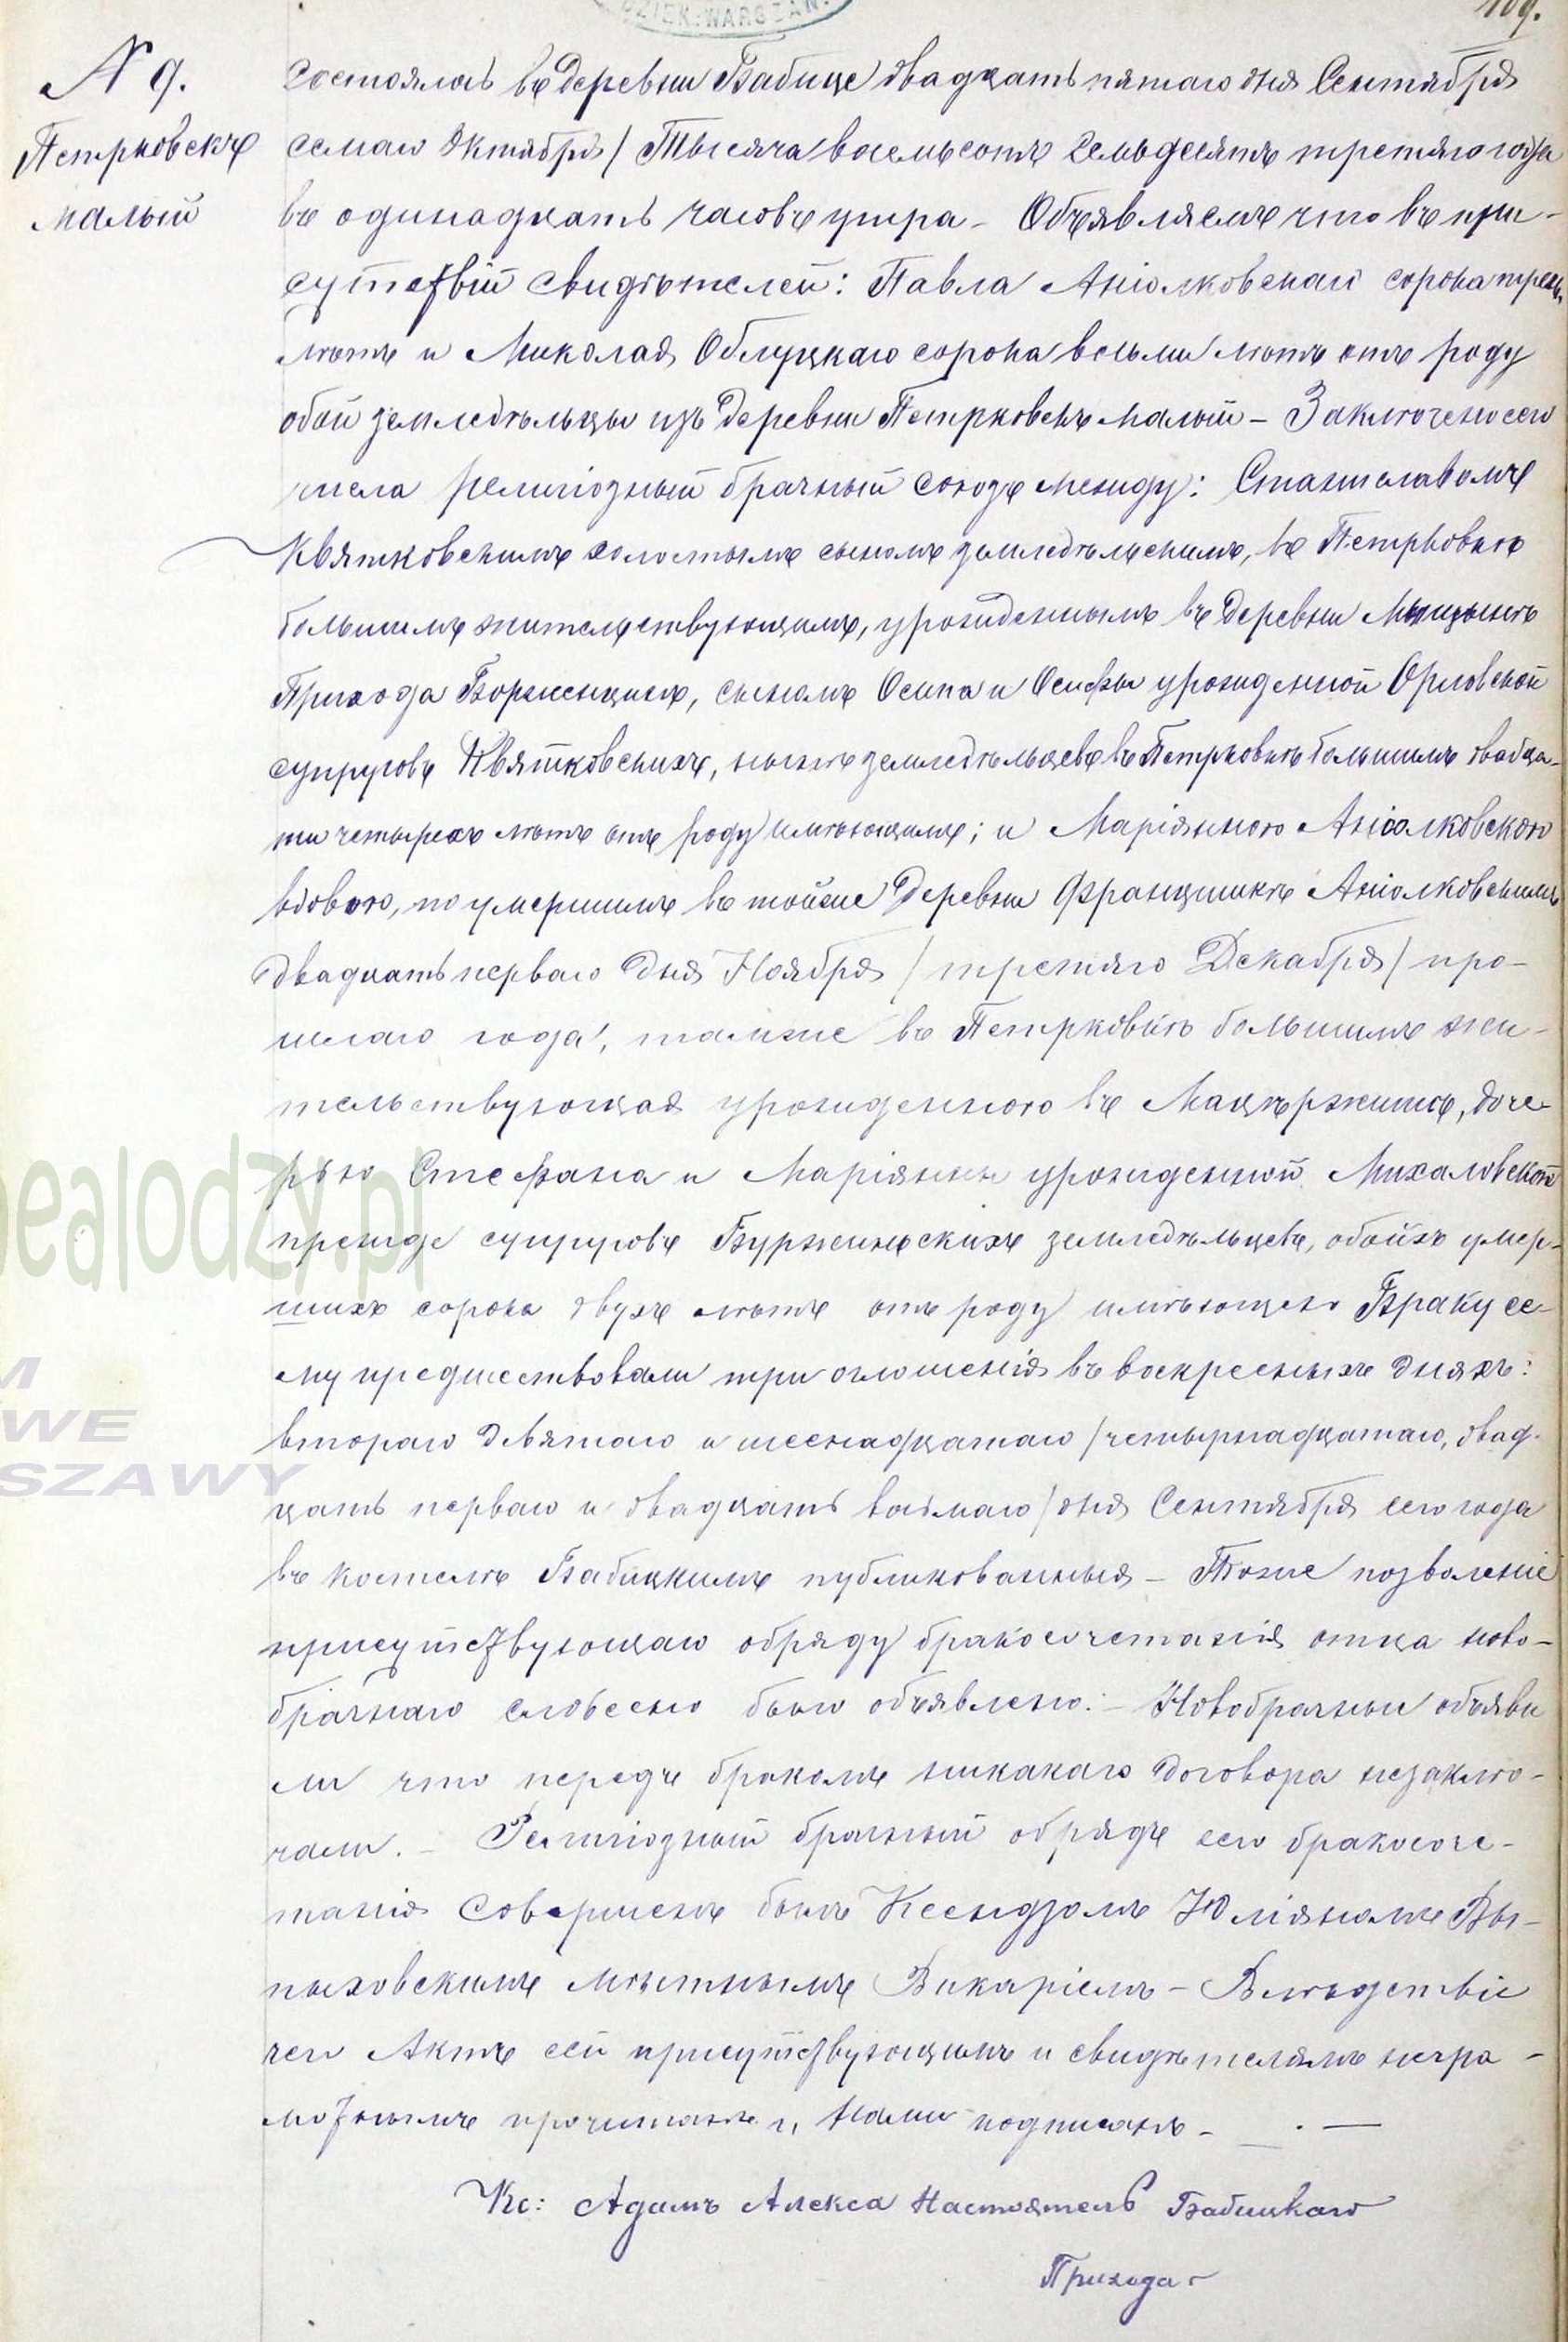 DZIEK: WARSZAW.
109.
N 9.
Петрковекъ
малый
Состоялось въ деревни Бабице двадцать пятаго дня Сентября
/седмаго Октября/ Тысяча восемьсотъ семьдесятъ третяго года
въ одинадцать часовъ утра – Объявляемъ что въ при-
сутствiй свидѣтелей: Павла Анiолковскаго сорока трехъ
лѣтъ и Миколая Облуцкаго сорока восьми лѣтъ отъ роду
обои земледѣльцы изъ деревни Петрковекъ малый – Заключено сего
числа религiозный брачный союзъ между: Станиславомъ
Квятковскимъ холостымъ сыномъ земледѣльскимъ, въ Петрковкѣ
большимъ жительствующимъ, урожденнымъ въ деревни
Прихода Борженцинъ, сыномъ Осипа и Осифы урожденной Орловской
супруговъ Квятковскихъ, нынѣ земледѣльцевъ въ Петрковкѣ большимъ двадца-
ти четырехъ лѣтъ отъ роду имѣющимъ; и Марiянною Анiолковскою
вдовою, по умершимъ въ тойже деревни Францишкѣ Анiолковскимъ
двадцать перваго дня Ноября /третяго Декабря/ про-
шлаго года, тамже въ Петрковкѣ большимъ жи-
тельствующая урожденною въ Мацержишѣ, доче-
рью Стефана и Марiянны урожденной Михаловской
прежде супруговъ Буржинскихъ земледѣльцевъ, обойхъ умер-
шихъ сорока двухъ лѣтъ отъ роду имѣющею Браку се-
му предшествовали три оглошенiя въ воскресныхъ дняхъ:
втораго девятаго и шеснадцатаго /четырнадцатаго, двад-
цать перваго и двадцать восьмаго/ дня Сентября сего года
въ костелѣ Бабицкимъ публикованныя – Тоже позволенiе
присутствующаго обряду бракосочетанiя отца ново-
брачнаго словесно было объявлено: – Новобрачные объяви
ли что передъ бракомъ никакаго договора незаклю-
чали. – Религiозный брачный обрядъ сего бракосоче-
танiя Совершенъ былъ Ксендзомъ Юлiяномъ Вы-
пыховскимъ мѣстнымъ Викарiемъ – Влѣдствiе
чего Актъ сей присутствующимъ и свидѣтелямъ негра-
мотнымъ прочитанъ и, Нами подписанъ –
Кс: Адамъ Алекса Настоятель Бабицкаго
Прихода
nealodzy.pl
M
WE
SZAWY